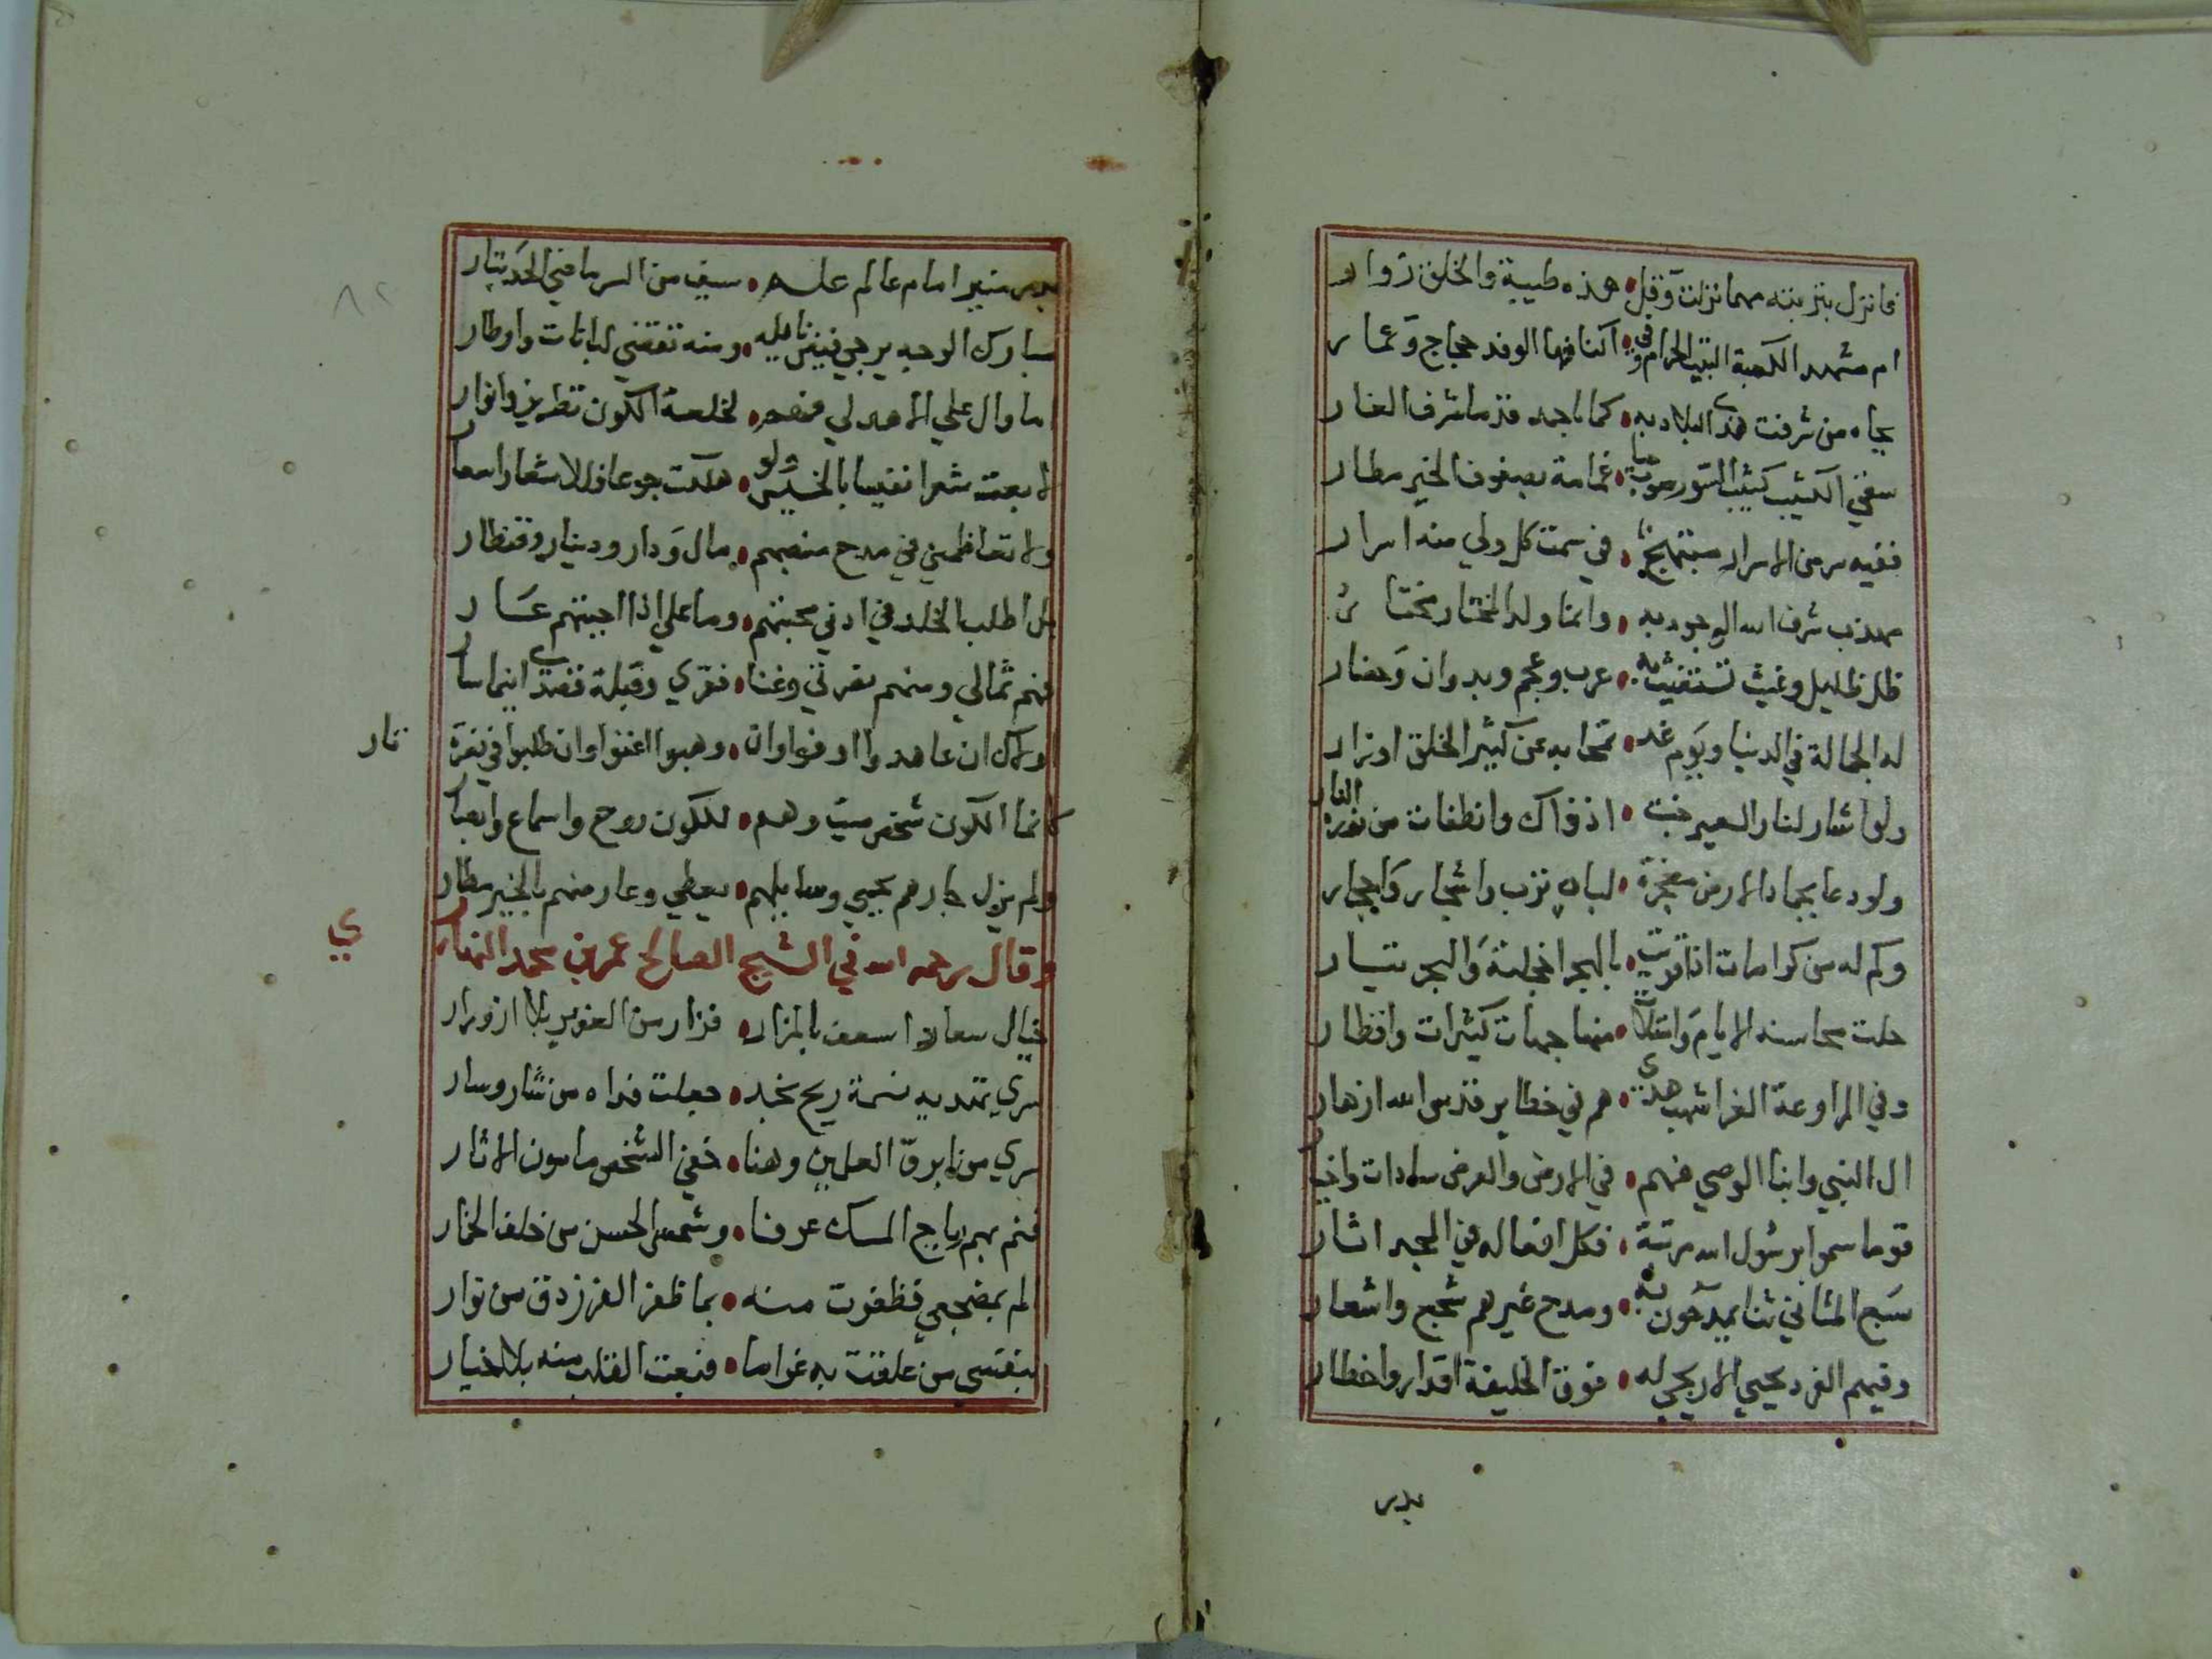 فانزل بتربته مهما نزلت وقل • هذه طيبة والخلق زوار
ام مشهد الكعبة البيت الحرام وفي • اكنافها الوفد حجاج وعمار
بجاه من شرفت هذى البلاد به • كما باحمد قدما شرف الغار
سقى الكثيب كثيب النور صوب حيا • غمامة بصنوف الخير مطار
ففيه سر من الاسرار مبتهج • في سمت كل ولي منه اسرار
مهذب شرف الله الوجود به • وانما ولد المختار مختار
ظل ظليل وغيث تستغيث به • عرب وعجم وبدوان وحضار
له الجمالة في الدنيا ويوم غد • تمحا به عن كثير الخلق اوزار
ولو اشار لنار السعير خبت • اذ ذاك وانطفات من نوره النار
ولو دعا بجماد الارض معجزة • لباه ترب واشجار واحجار
وكم له من كرامات اذا قريت • بالبحر اخجلته والبحر تيار
حلت محاسنه الايام وامتلات • منها جهات كثيرات واقطار
وفي المراوعة الغرا شهب هدى • هم في خطاير قدس الله ازهار
ال النبي وابنا الوصي فهم • في الارض والعرض سادات واخيار
قوما سموا برسول الله مرتبة • فكل افعاله في المجد اثار
سبع المثاني ثنا يمدحون به • ومدح غيرهم شجع واشعار
وفيهم الفرد يحيي الاريحي له • فوق الخليقة اقدار واخطار
بدر
بدر منير امام عالم علم • سيف من السر ماضي الحد بتار
مبارك الوجه يرجي فيض نايله • ومنه تقضي لبانات واوطار
اما وال علي الاهدلي فهم • لخلعة الكون تطريز وانوار
لا بعت شعرا نفيسا بالخسيس ولو • هلكت جوعا فللاشعار اسعار
ولا تعاظمني في مدح منصبهم • مال ودار ودينار وقنطار
بل اطلب الخلد في ادني محبتهم • وما علي اذا احببتهم عار
فهم ثمالي ومنهم نصرتي وغنا • فقري وقبلة قصدي اينما ساروا
اولئك ان عاهدوا اوفوا وان • وهبوا اغنوا وان طلبوا في نصرة
ثار
كانما الكون شخص ميت وهم • للكون روح واسماع وابصار
ولم يزل جارهم يحيي وسايلهم • يعطي وعار منهم بالخير مطار
وقال رحمه الله في الشيخ الصالح عمر بن محمد النهاري
خيال سعاد اسعف بالمزار • فزار من الغوير بلا ازورار
سري يتهديه نسمة ريح نجد • جعلت فداه من شار وسار
سري من ابرق العلمين وهنا • خفي الشخص مامون الاثار
فنم بهم رياح المسك عرفا • وشمس الحسن من خلف الخمار
الم بمضجعي فظفرت منه • بما ظفر الفرزدق من نوار
بنفسي من علقت به غراما • فبعت القلب منه بلا خيار